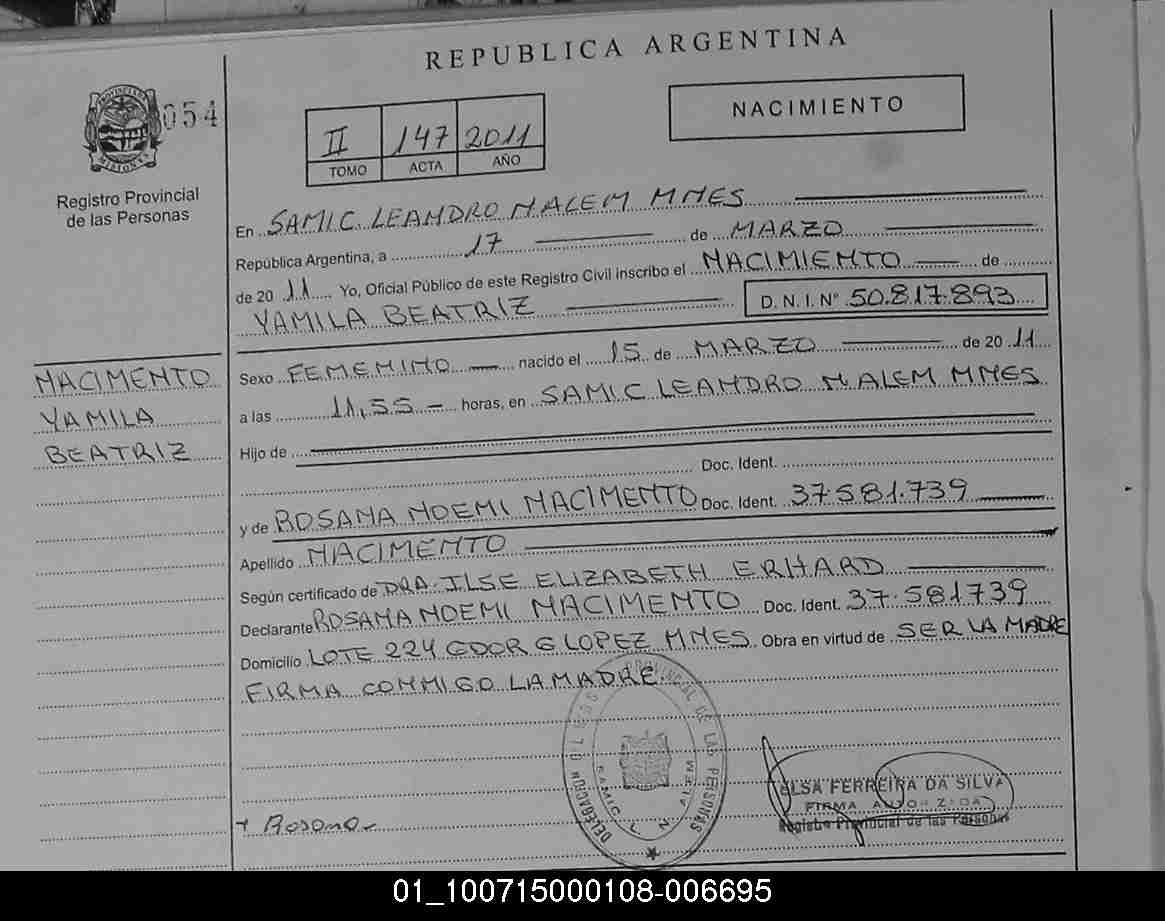 REPUBLICA ARGENTINA
054
NACIMIENTO
II 147 2011
TOMO ACTA AÑO
PROVINCIA DE MISIONES
Registro Provincial
de las Personas
En SAMIC LEANDRO N ALEM MNES
República Argentina, a 17 de MARZO
de 2011 Yo, Oficial Público de este Registro Civil inscribo el NACIMIENTO de
YAMILA BEATRIZ D.N.I. Nº 50.817.893
NACIMENTO
YAMILA
BEATRIZ
Sexo FEMENINO nacido el 15 de MARZO de 2011
a las 11,55 horas, en SAMIC LEANDRO N ALEM MNES
Hijo de
Doc. Ident.
y de ROSANA NOEMI NACIMENTO Doc. Ident. 37581.739
Apellido NACIMENTO
Según certificado de DRA. ILSE ELIZABETH ERHARD
Declarante ROSANA NOEMI NACIMENTO Doc. Ident. 37.581739
Domicilio LOTE 224 GDOR G LOPEZ MNES. Obra en virtud de SER LA MADRE
FIRMA CONMIGO LA MADRE.
PROVINCIAL DE LAS PERSONAS
DELEGACION
SAMIC L. N. ALEM
ELSA FERREIRA DA SILVA
FIRMA AUTORIZADA
Registro Provincial de las Personas
+ Rosana
01_100715000108-006695